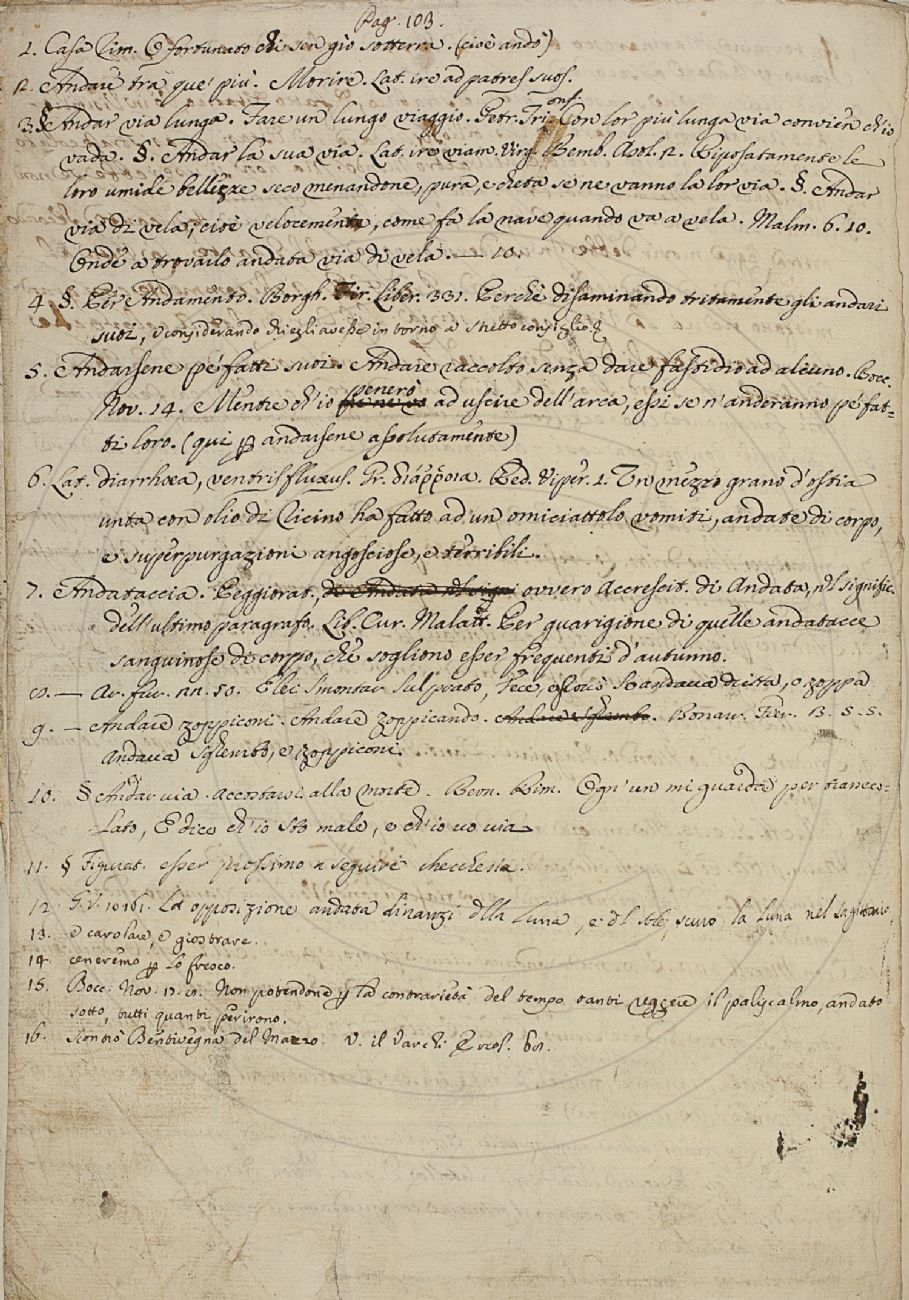 Pag. 103.
1. Casa Rim. O fortunato chi sen gio sotterra. (cioè andò)
2. Andare tra que' più. Morire. Lat. ire ad patres suos.
3. § Andar via lunga. Fare un lungo viaggio. Petr. Trionf. Con lor più lunga via convien ch'io
vada. §. Andar la sua via. Lat. ire viam. Virg. Bemb. Asol. 2. Riposatamente le
loro umide bellezze seco menandone, pura, e cheta se ne vanno la lor via. §. Andar
via di vela, cioè velocemente, come fa la nave quando va a vela. Malm. 6. 10.
Onde a trovarlo andata via di vela. — 10.
4 §. Per Andamento. Borgh. Fir. Liber. 331. Perchè disaminando tritamente gli andari
suoi, e considerando ch'egli avesse intorno a stretto consiglio.
5. Andarsene pe' fatti suoi. Andare raccolto senza dare fastidio ad alcuno. Bocc.
Nov. 14. Mentre ch'io penerò ad uscire dell'arca, essi se n'anderanno pe' fat-
ti loro. (qui ꝑ andarsene assolutamente)
6. Lat. diarrhoea, ventris fluxus. Gr. διάῤῥοια. Red. Viper. 1. Un mezzo grano d'ostia
unta con olio di Ricino ha fatto ad un omiciattolo vomiti, andate di corpo,
e superpurgazioni angosciose, e terribili.
7. Andataccia. Peggiorat., di Andata nel signi ovvero Accrescit. di Andata, nel signific.
dell'ultimo paragrafo. Lib. Cur. Malatt. Per guarigione di quelle andatacce
sanguinose di corpo, che sogliono esser frequenti d'autunno.
8. — Ar. fur. nn. 50. smontar sul prato, e zoppa
9. — Andare zoppiconi. Andare zoppicando. Andare Sghembo. Bonar. Fier. 3. 5. 5.
Andava Sghembo, e zoppiconi.
10. § Andar via. Accostarsi alla morte. Bern. Rim. Ogn'un mi guarda per trasseco-
lato, E dice ch'io sto male, e ch'io vo via
11. § Figurat. esser prossimo a seguire checchesia.
12. G. V. 10 161. La opposizione andata dinanzi dlla Luna, e dl sole, scurò la luna nel sagitario,
13. e carolare, e giostrare.
14. ceneremo ꝑ lo fresco.
15. Bocc. Nov. 17. 8. Non potendone ꝑ la contrarietà del tempo tanti reggere il paliscalmo, andato
sotto, tutti quanti perirono.
16. Scontrò Bentivegna del Mazzo. V. il Varchi Ercol. 68.